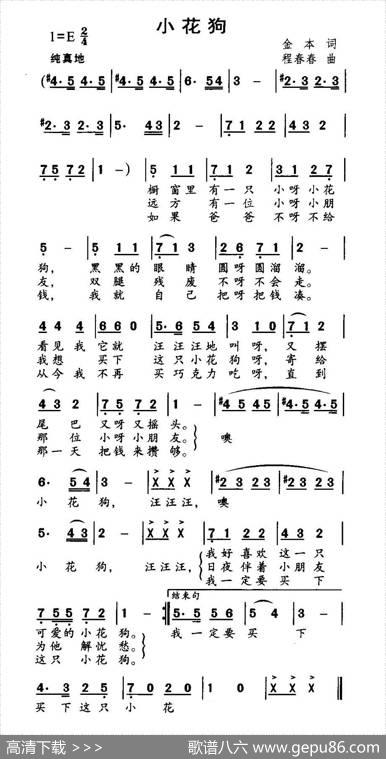 小花狗
1=E 2/4
金本 词
纯真地
程春春 曲
(#4·5 4·5 | #4·5 4·5 | 6·5 54 | 3 - | #2·3 2·3 |
#2·3 2·3 | 5· 43 | 2 - | 7 1 2 2 | 4 3 2 |
7 5 7 2 | 1 -) | 5 1 1 | 7 1 2 | 3 1 2 7 |
橱窗里 有一只 小呀小花
远方 有一位 小呀小朋
如果 爸爸 不呀不给
5 - | 5 1 1 | 7 1 3 | 6 6 5 5 | 2 - |
狗， 黑黑的 眼睛 圆呀圆溜溜。
友， 双腿 残废 不呀不会走。
钱， 我就 自己 把呀把钱凑。
4 4 3 | 6 6 0 | 5·6 5 4 | 3 1 0 | (7 1) 2 |
看见我 它就 汪汪汪地 叫呀， 又摆
我想 买下 这只小花 狗呀， 寄给
从今我 不再 买巧克力 吃呀， 直到
4 3 2 | 7 5 7 2 | 1 - | #4 5 4 5 | #4·5 4·5 |
尾巴 又呀又摇头。
那位 小呀小朋友。 噢
那一天 把钱来攒够。
6· 54 | 3 - | X X X | #2 3 2 3 | #2·3 2·3 |
小花 狗， 汪汪汪， 噢
5· 43 | 2 - | X X X | 7 1 2 2 | 4 3 2 |
我好喜欢 这一只
小花 狗， 汪汪汪， 日夜伴着 小朋友
我一定要 买下
结束句
7 5 5 7 2 | 1 - :| 5·5 5 6 | 5 4 | 3 - |
可爱的小花 狗。 我一定要 买 下
为他 解忧 愁。
这只 小花 狗。
4· 3 | 2·5 | 7 0 2 0 | 1 0 | X X X ‖
买下这只 小花
高清下载 >>>
歌谱八六 www.gepu86.com